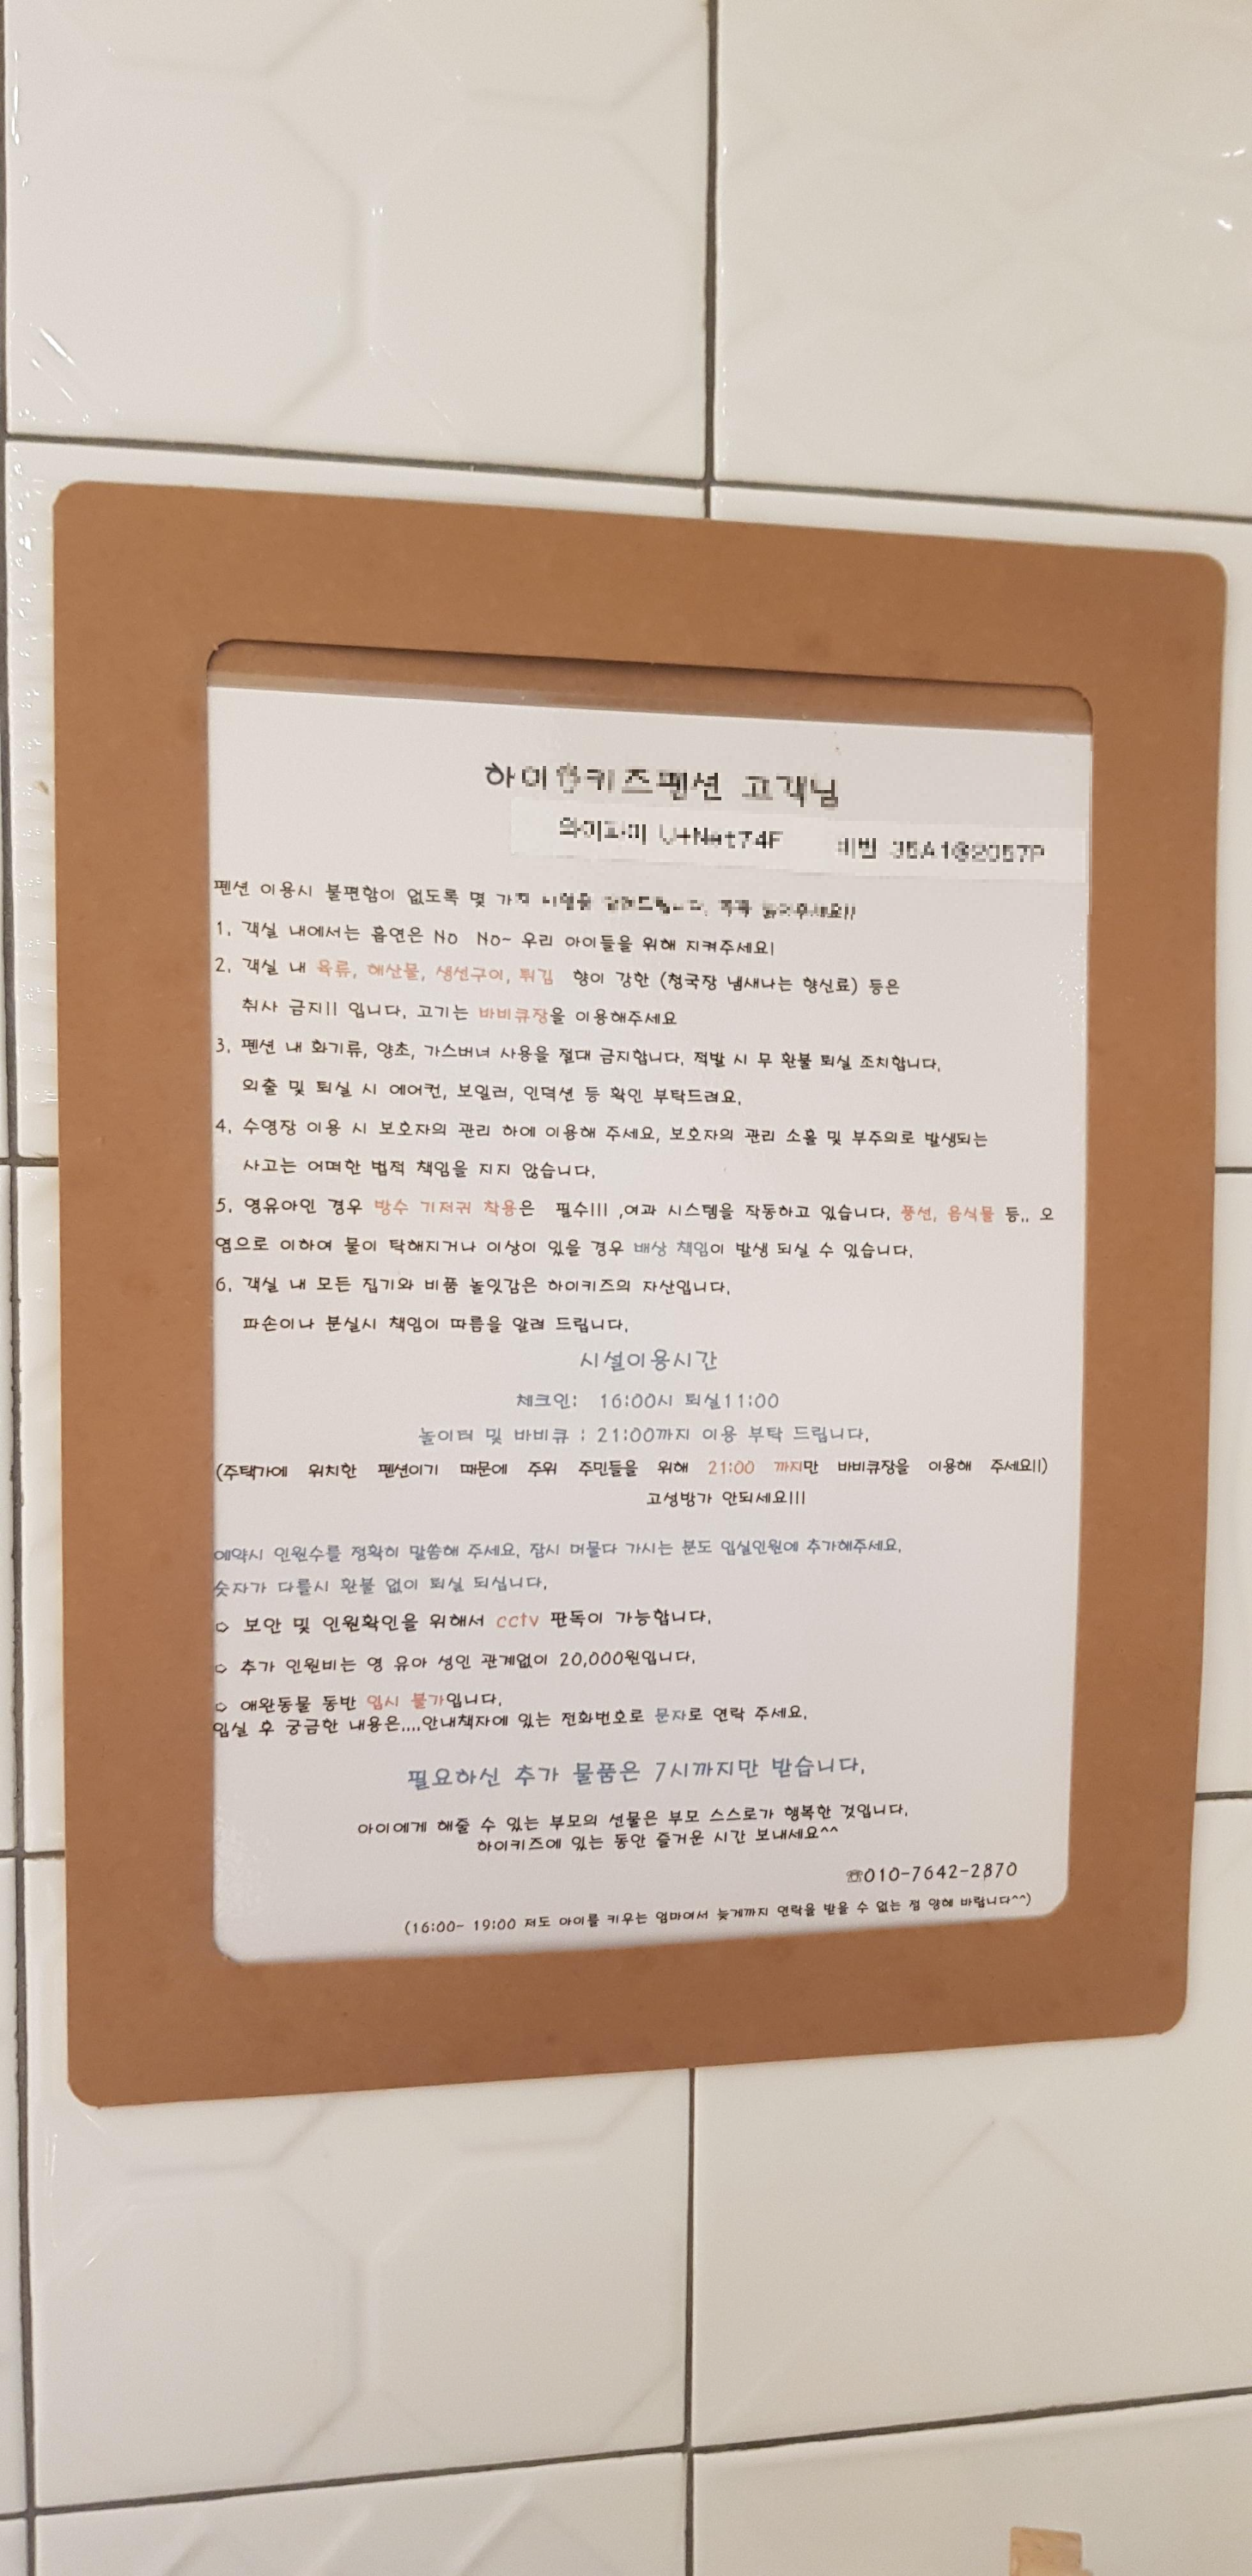 하이 키즈펜션 고객님
와이파이
비번
펜션 이용시 불편함이 없도록 몇 가지
1. 객실 내에서는 흡연은 No No~ 우리 아이들을 위해 지켜주세요!
2. 객실 내 육류, 해산물, 생선구이, 튀김 향이 강한 (청국장 냄새나는 향신료) 등은
취사 금지!! 입니다. 고기는 바비큐장을 이용해주세요
3. 펜션 내 화기류, 양초, 가스버너 사용을 절대 금지합니다. 적발 시 무 환불 퇴실 조치합니다.
외출 및 퇴실 시 에어컨, 보일러, 인덕션 등 확인 부탁드려요.
4. 수영장 이용 시 보호자의 관리 하에 이용해 주세요, 보호자의 관리 소홀 및 부주의로 발생되는
사고는 어떠한 법적 책임을 지지 않습니다.
5. 영유아인 경우 방수 기저귀 착용은 필수!!! ,여과 시스템을 작동하고 있습니다. 풍선, 음식물 등.. 오
염으로 이하여 물이 탁해지거나 이상이 있을 경우 배상 책임이 발생 되실 수 있습니다.
6. 객실 내 모든 집기와 비품 놀잇감은 하이키즈의 자산입니다.
파손이나 분실시 책임이 따름을 알려 드립니다.
시설이용시간
체크인: 16:00시 퇴실11:00
놀이터 및 바비큐 : 21:00까지 이용 부탁 드립니다.
(주택가에 위치한 펜션이기 때문에 주위 주민들을 위해 21:00 까지만 바비큐장을 이용해 주세요!!)
고성방가 안되세요!!!
예약시 인원수를 정확히 말씀해 주세요. 잠시 머물다 가시는 분도 입실인원에 추가해주세요.
숫자가 다를시 환불 없이 퇴실 되십니다.
➪ 보안 및 인원확인을 위해서 cctv 판독이 가능합니다.
➪ 추가 인원비는 영 유아 성인 관계없이 20,000원입니다.
➪ 애완동물 동반 입시 불가입니다.
입실 후 궁금한 내용은....안내책자에 있는 전화번호로 문자로 연락 주세요.
필요하신 추가 물품은 7시까지만 받습니다.
아이에게 해줄 수 있는 부모의 선물은 부모 스스로가 행복한 것입니다.
하이키즈에 있는 동안 즐거운 시간 보내세요^^
☏010-7642-2870
(16:00- 19:00 저도 아이를 키우는 엄마여서 늦게까지 연락을 받을 수 없는 점 양해 바랍니다^^)